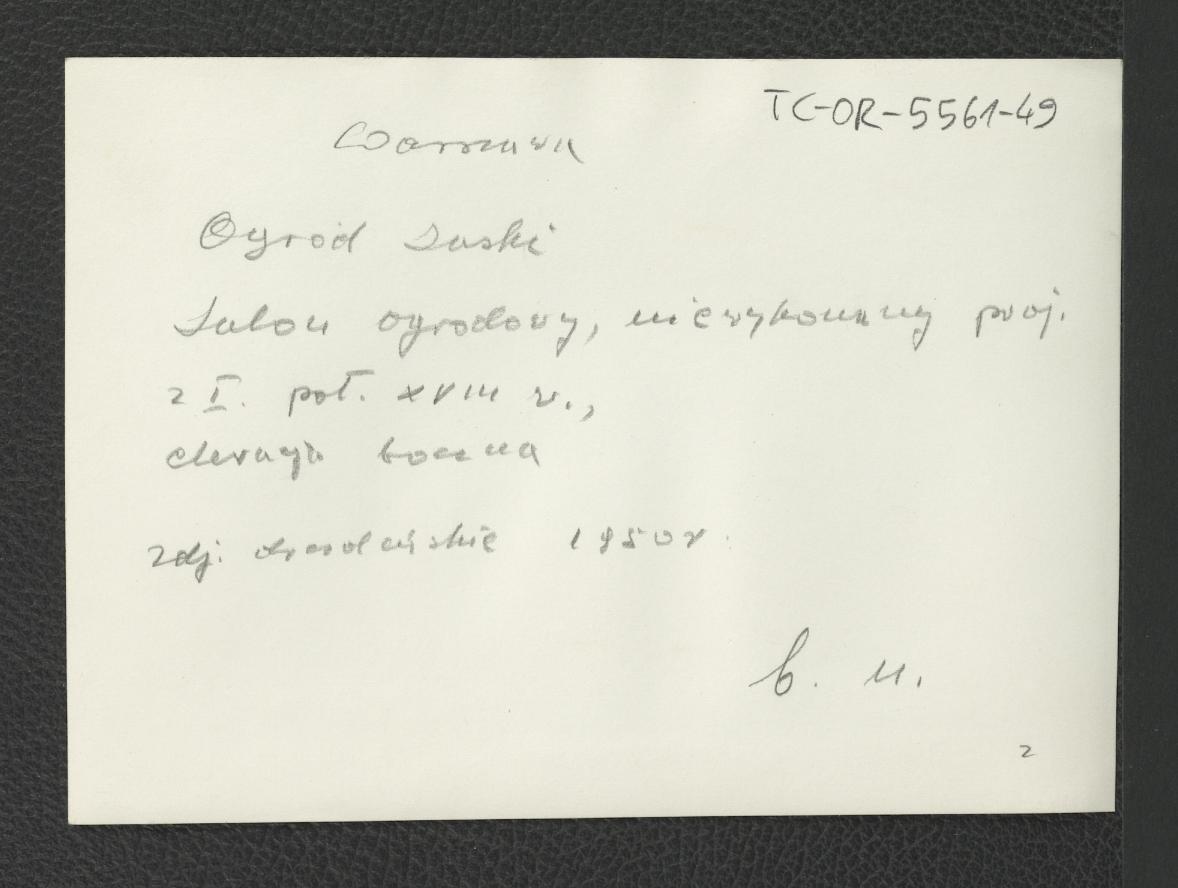 TC-OR-5561-49
Warszawa
Ogród Saski
Salon ogrodowy, niewykonany proj.
z I. poł. XVIII w.,
elewacja boczna
zdj. drezdeńskie 1950 r.
b. n.
2